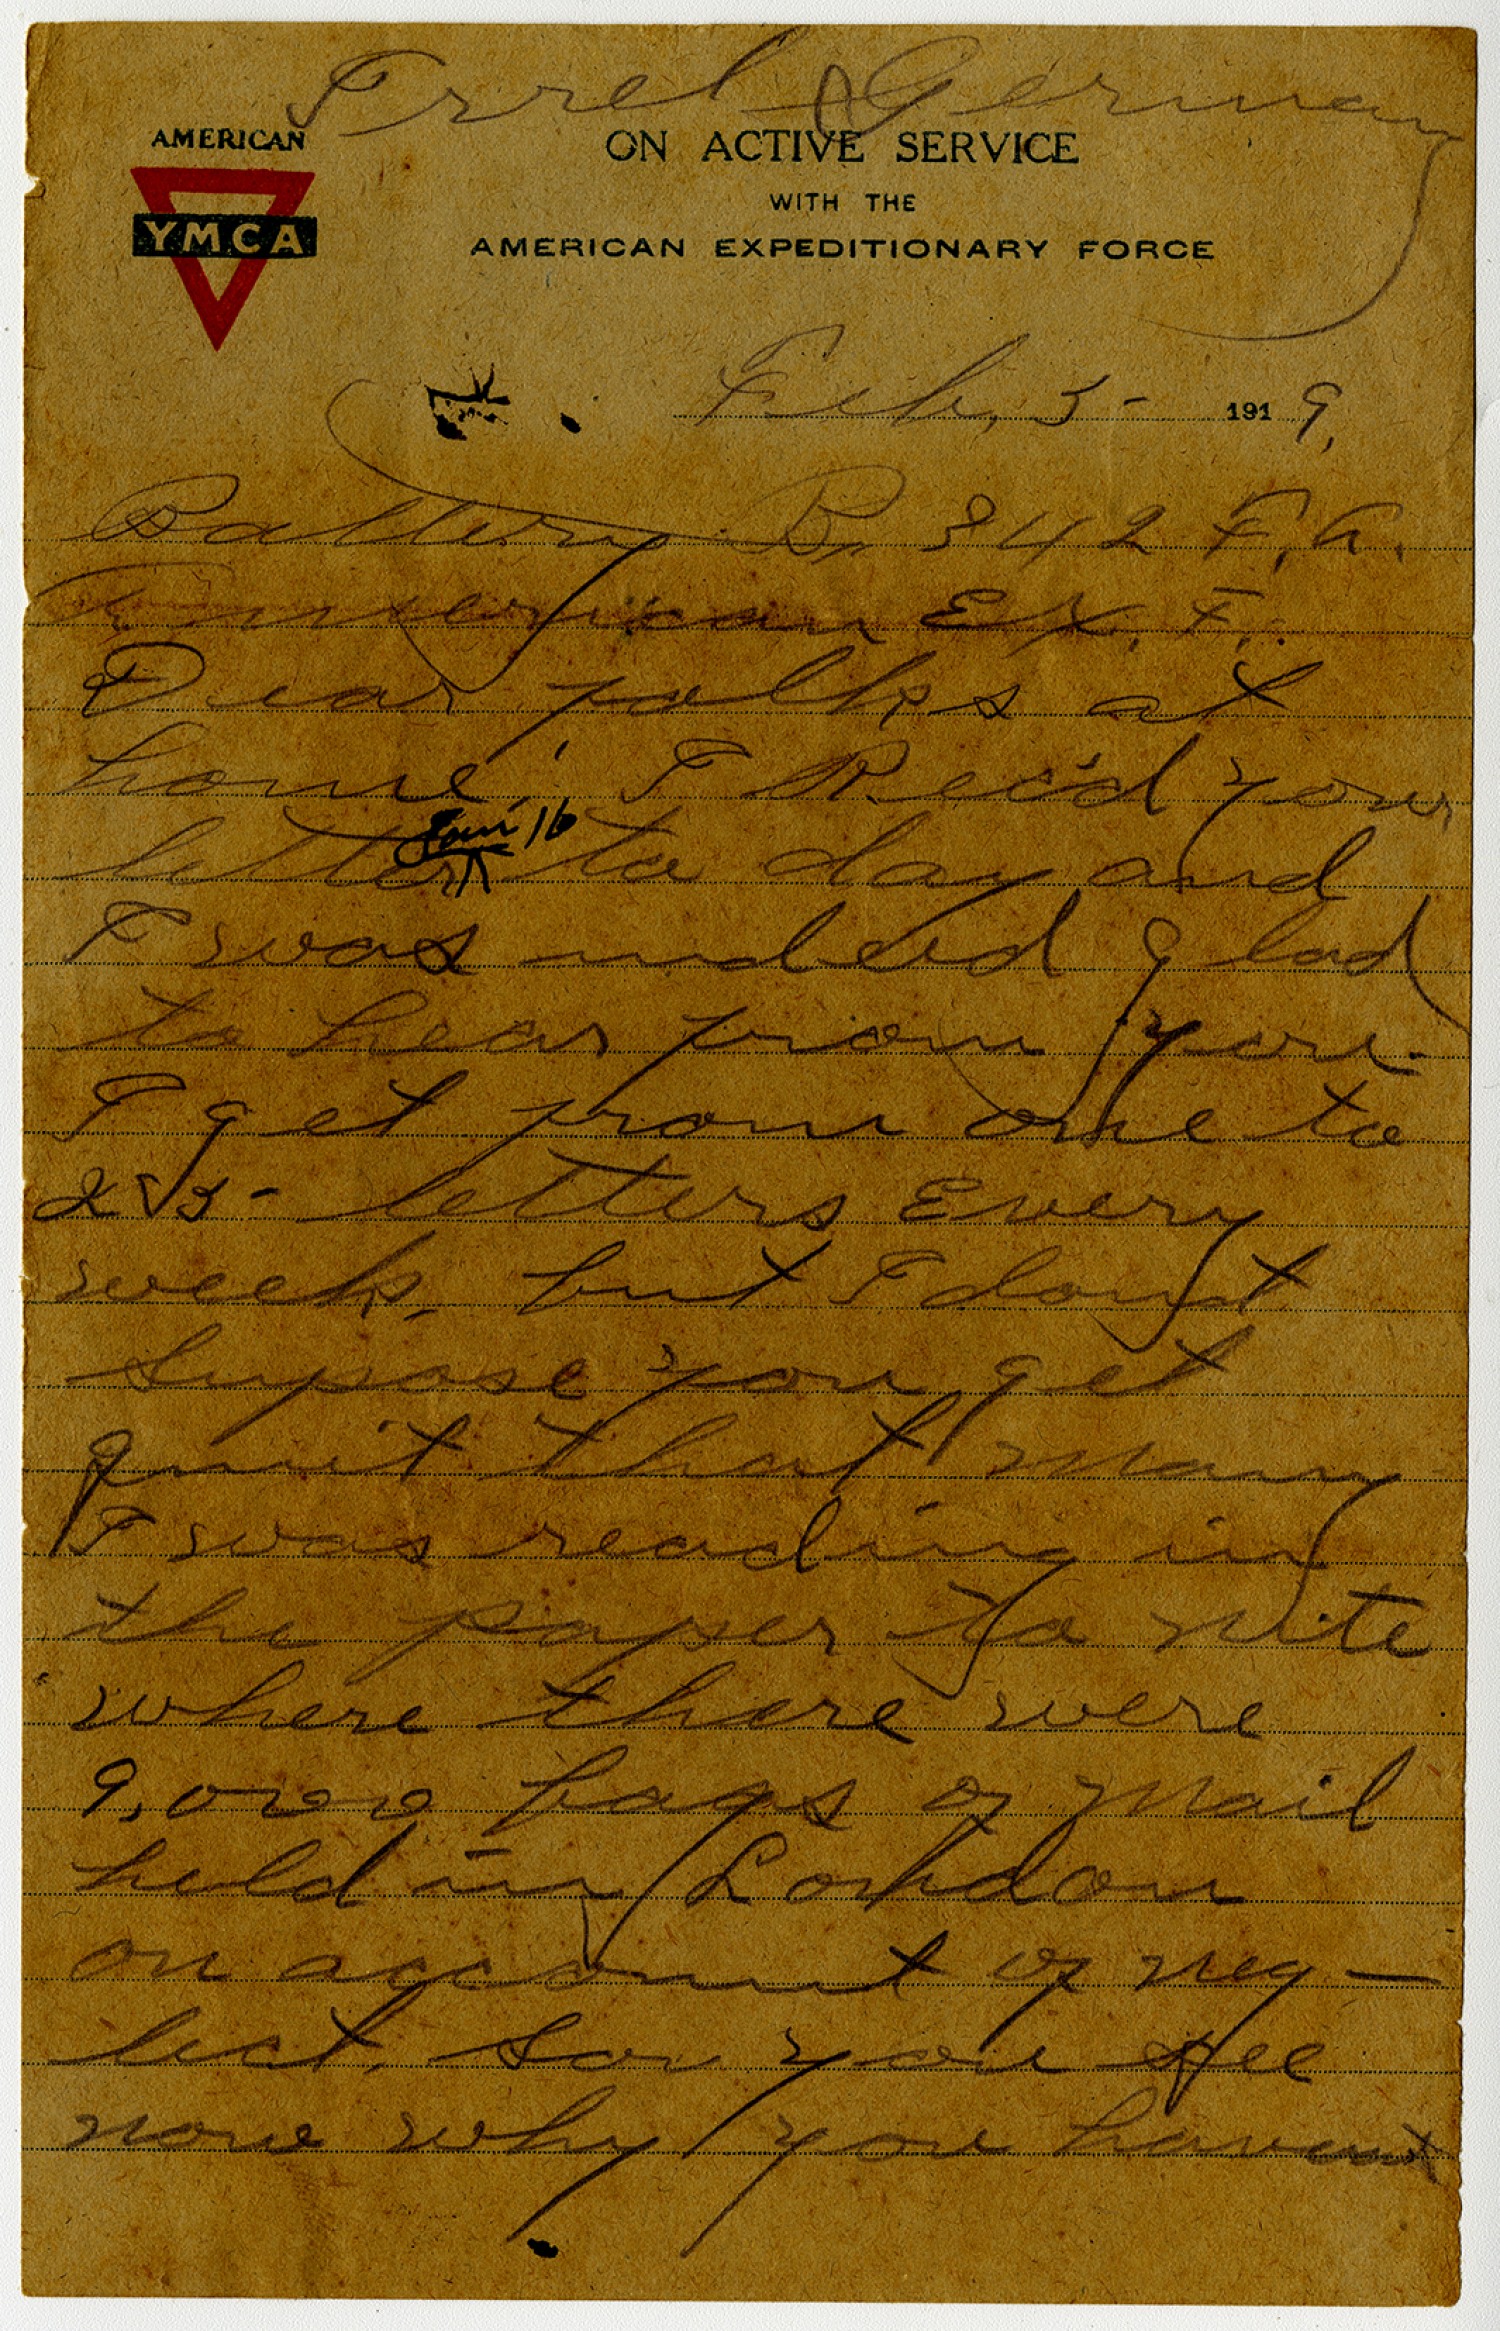 Irrel Germany
AMERICAN
YMCA
ON ACTIVE SERVICE
WITH THE
AMERICAN EXPEDITIONARY FORCE
Feb, 5- 1919,
Battery B, 342 F, A.
American Ex, F,.
Dear folks at
home, I Rec'd your
Jan 16
letter to day and
I was indeed glad
to hear from you.
I get from one to
2 & 3- letters Every
week, but I dont
supose you get
quit that many
I was reading in
the paper to nite
where there were
9,000 bags of mail
held in London
on account of neg-
lect, so you see
now why you havent